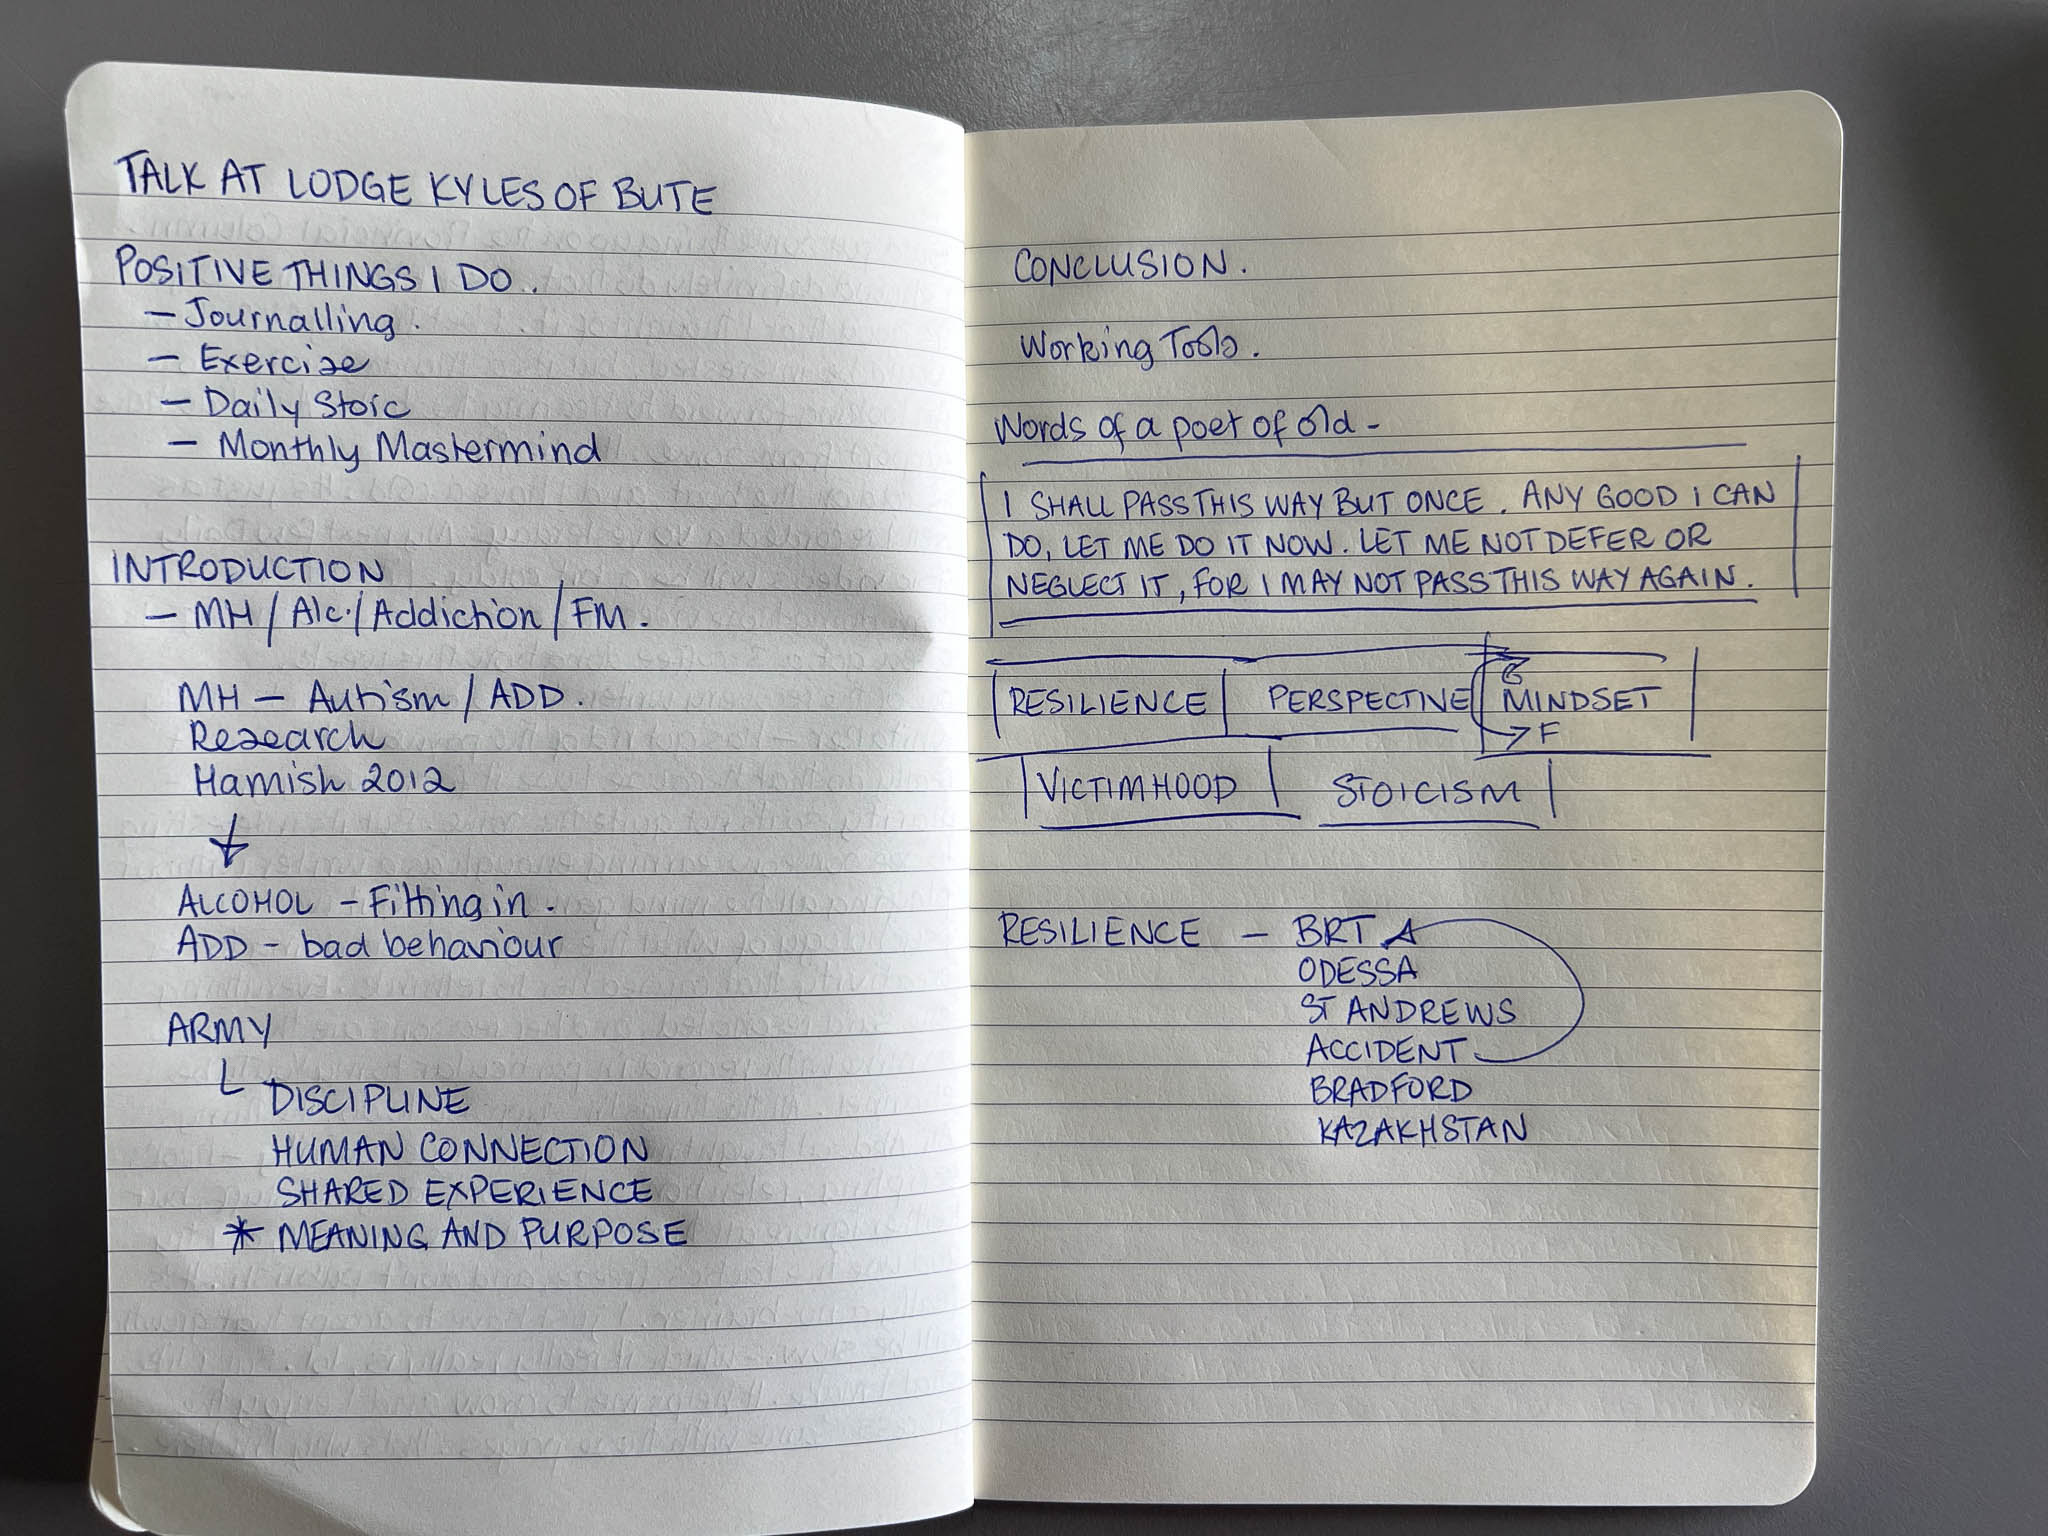 TALK AT LODGE KYLES OF BUTE
POSITIVE THINGS I DO.
- Journalling.
- Exercise
- Daily Stoic
- Monthly Mastermind
INTRODUCTION
- MH / Alc. / Addiction / FM.
MH - Autism / ADD.
Research
Hamish 2012
ALCOHOL - Fitting in.
ADD - bad behaviour
ARMY
DISCIPLINE
HUMAN CONNECTION
SHARED EXPERIENCE
* MEANING AND PURPOSE
CONCLUSION.
Working Tools.
Words of a poet of old -
I SHALL PASS THIS WAY BUT ONCE. ANY GOOD I CAN
DO, LET ME DO IT NOW. LET ME NOT DEFER OR
NEGLECT IT, FOR I MAY NOT PASS THIS WAY AGAIN.
G
RESILIENCE PERSPECTIVE MINDSET
F
VICTIMHOOD STOICISM
RESILIENCE - BRT
ODESSA
ST ANDREWS
ACCIDENT
BRADFORD
KAZAKHSTAN